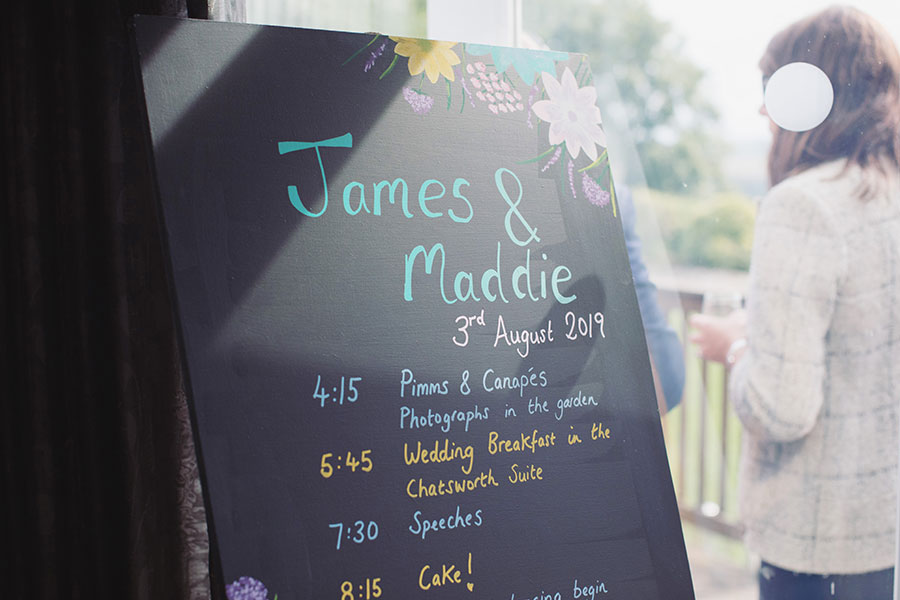 James &
Maddie
3rd August 2019
4:15 Pimms & Canapés
Photographs in the garden
5:45 Wedding Breakfast in the
Chatsworth Suite
7:30 Speeches
8:15 Cake!
begin